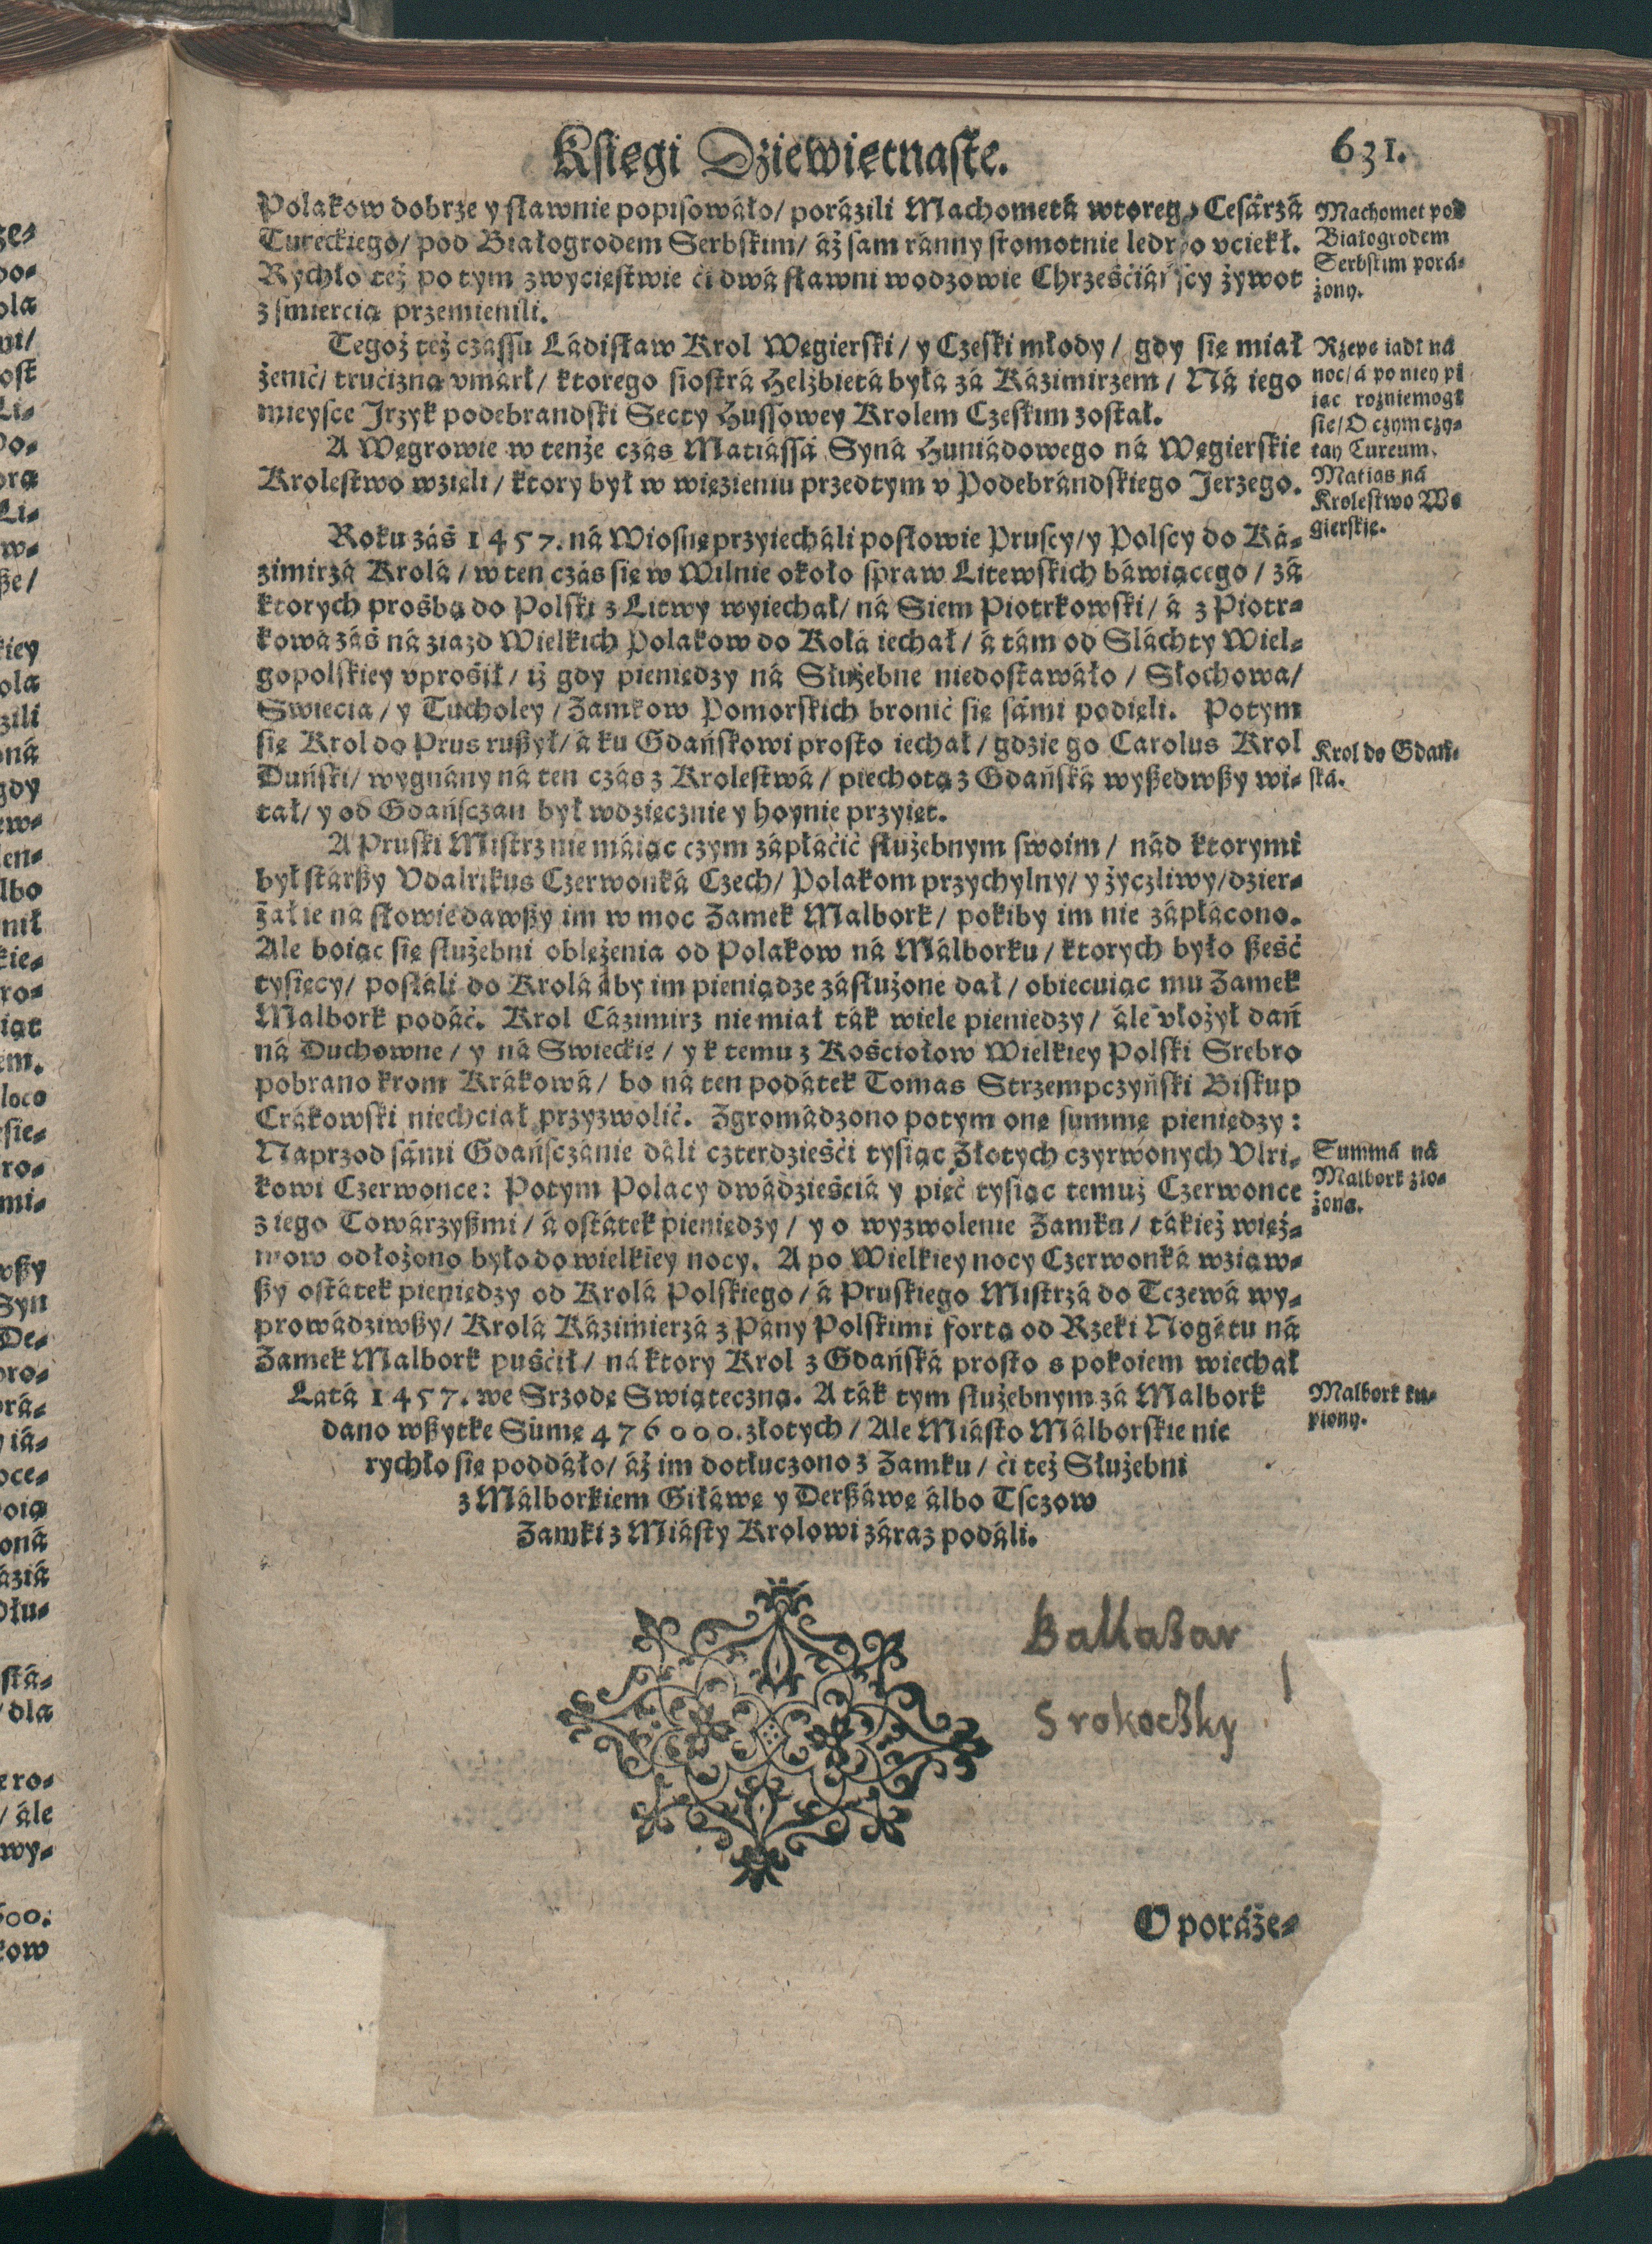 Księgi Dziewiętnaste.
631.
Polakow dobrze y sławnie popisowáło/ porázili Machometá wtorego Cesárzá
Tureckiego/ pod Białogrodem Serbskim/ áż sam ránny sromotnie ledwo vciekł.
Rychło też po tym zwycięstwie ći dwá sławni wodzowie Chrześćiáńscy żywot
z śmiercią przemienili.
Tegoż też czássu Ládisław Krol Węgierski/ y Czeski młody/ gdy się miał
żenić/ trućizną vmárł/ ktorego siostrá Helżbietá byłá zá Kázimirzem/ Ná iego
mieysce Jrzyk podebrandski Secty Hussowey Krolem Czeskim został.
A Węgrowie w tenże czás Matiássá Syná Huniádowego ná Węgierskie
Krolestwo wzięli/ ktory był w więzieniu przedtym v Podebrándskiego Jerzego.
Roku záś 1457. ná Wiosnę przyiecháli posłowie Pruscy/ y Polscy do Ká-
zimirzá Krolá/ w ten czás się w Wilnie około spraw Litewskich báwiącego/ zá
ktorych prośbą do Polski z Litwy wyiechał/ ná Siem Piotrkowski/ á z Piotr-
kowá záś ná ziazd Wielkich Polakow do Kołá iechał/ á tám od Sláchty Wiel-
gopolskiey vprośił/ iż gdy pieniędzy ná Służebne niedostawáło/ Słochowa/
Swiecia/ y Tucholey/ Zamkow Pomorskich bronić się sámi podięli. Potym
się Krol do Prus rußył/ á ku Gdańskowi prosto iechał/ gdzie go Carolus Krol
Duński/ wygnány ná ten czás z Krolestwá/ piechotą z Gdańská wyßedwßy wi-
tał/ y od Gdańsczan był wdzięcznie y hoynie przyięt.
A Pruski Mistrz nie máiąc czym zápłáćić służebnym swoim/ nád ktorymi
był stárßy Vdalrikus Czerwonká Czech/ Polakom przychylny/ y życzliwy/ dzier-
żał ie ná słowie dawßy im w moc Zamek Malbork/ pokiby im nie zápłácono.
Ale boiąc się służebni oblężenia od Polakow ná Málborku/ ktorych było ßeść
tysięcy/ posłáli do Krolá áby im pieniądze zásłużone dał/ obiecuiąc mu Zamek
Malbork podáć. Krol Cázimirz nie miał ták wiele pieniedzy/ ále vłożył dań
ná Duchowne/ y ná Swieckie/ y k temu z Kośćiołow Wielkiey Polski Srebro
pobrano krom Krákowá/ bo ná ten podátek Tomas Strzempczyński Biskup
Crákowski niechciał przyzwolić. Zgromádzono potym onę summę pieniędzy:
Naprzod sámi Gdańsczánie dáli czterdzieśći tysiąc Złotych czyrwonych Vlri-
kowi Czerwonce: Potym Polacy dwádzieśćiá y pięć tysiąc temuż Czerwonce
z iego Towárzyßmi/ á ostátek pieniędzy/ y o wyzwolenie Zamku/ tákież więź-
niow odłożono było do wielkiey nocy. A po Wielkiey nocy Czerwonká wziąw-
ßy ostátek pieniędzy od Krolá Polskiego/ á Pruskiego Mistrzá do Tczewá wy-
prowádziwßy/ Krolá Kázimierzá z Pány Polskimi fortą od Rzeki Nogátu ná
Zamek Malbork puśćił/ ná ktory Krol z Gdańská prosto s pokoiem wiechał
Látá 1457. we Srzodę Swiąteczną. A ták tym służebnym zá Malbork
dano wßytkę Sumę 476000. złotych/ Ale Miásto Málborskie nie
rychło się poddáło/ áż im dotłuczono z Zamku/ ći też Służebni
z Málborkiem Giłáwę y Derßáwę álbo Tsczow
Zamki z Miásty Krolowi záraz podáli.
Machomet pod
Białogrodem
Serbskim porá-
żony.
Rzepę iadł ná
noc/ á po niey pi
iąc rozniemogł
sie/ O czym czy-
tay Cureum.
Matias ná
Krolestwo Wę
gierskie.
Krol do Gdań-
ská.
Summá ná
Malbork zło-
żona.
Malbork ku-
piony.
Baltaßar
Srokoczky
O poráże-